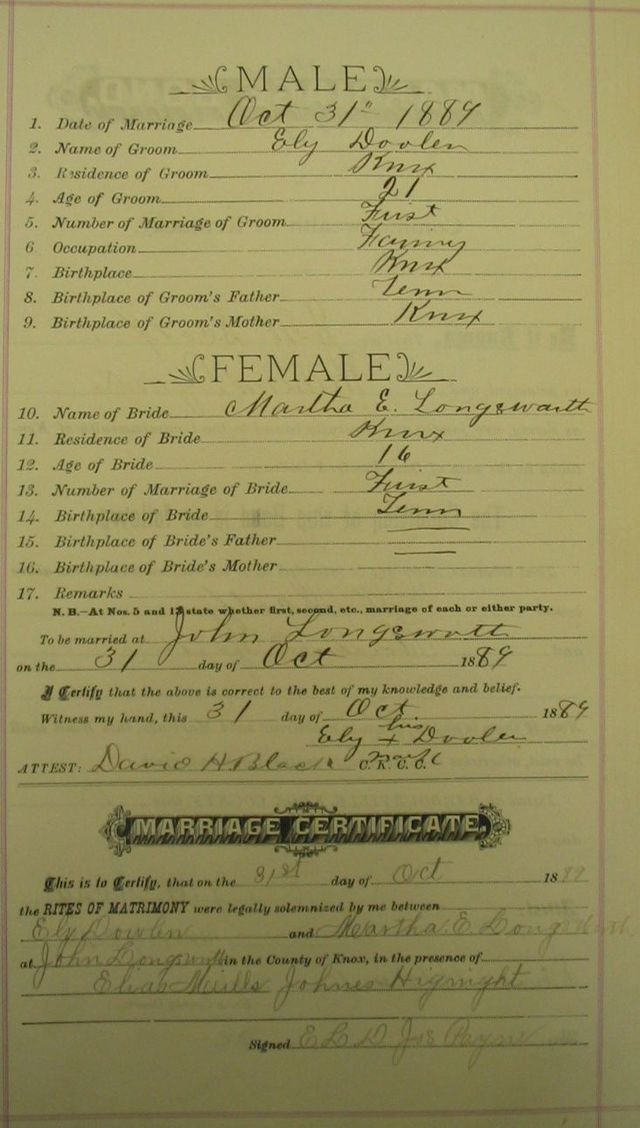 MALE
1. Date of Marriage Oct 31" 1889
2. Name of Groom Ely Doolen
3. Residence of Groom Knx
4. Age of Groom 21
5. Number of Marriage of Groom First
6 Occupation Faimg
7. Birthplace Knx
8. Birthplace of Groom's Father Tenn
9. Birthplace of Groom's Mother Knx
FEMALE
10. Name of Bride Martha E. Longswarth
11. Residence of Bride Knx
12. Age of Bride 16
13. Number of Marriage of Bride First
14. Birthplace of Bride Tenn
15. Birthplace of Bride's Father
16. Birthplace of Bride's Mother
17. Remarks
N. B.—At Nos. 5 and 13 state whether first, second, etc., marriage of each or either party.
To be married at John Longswott
on the 31 day of Oct 1889
I Certify that the above is correct to the best of my knowledge and belief.
Witness my hand, this 31 day of Oct. 1889
Ely his x Doolen
ATTEST: David H Black C. K. C. C. mark
MARRIAGE CERTIFICATE.
This is to Certify, that on the 31st day of Oct 1889
the RITES OF MATRIMONY were legally solemnized by me between
Ely Dowlen and Martha E Long
at John Longswott in the County of Knox, in the presence of
Elias Mills Hignight
Signed E L D Payn